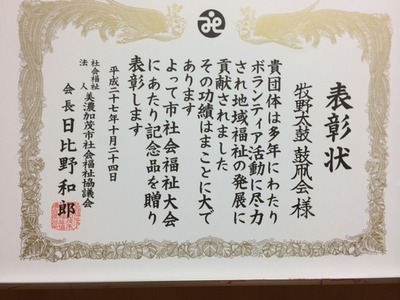 表彰状
牧野太鼓 鼓凧会 様
貴団体は多年にわたり
ボランティア活動に尽力
され地域福祉の発展に
貢献されました
その功績はまことに大で
あります
よって市社会福祉大会
にあたり記念品を贈り
表彰します
平成二十七年十月二十四日
社会福祉法人 美濃加茂市社会福祉協議会
会長 日比野和郎